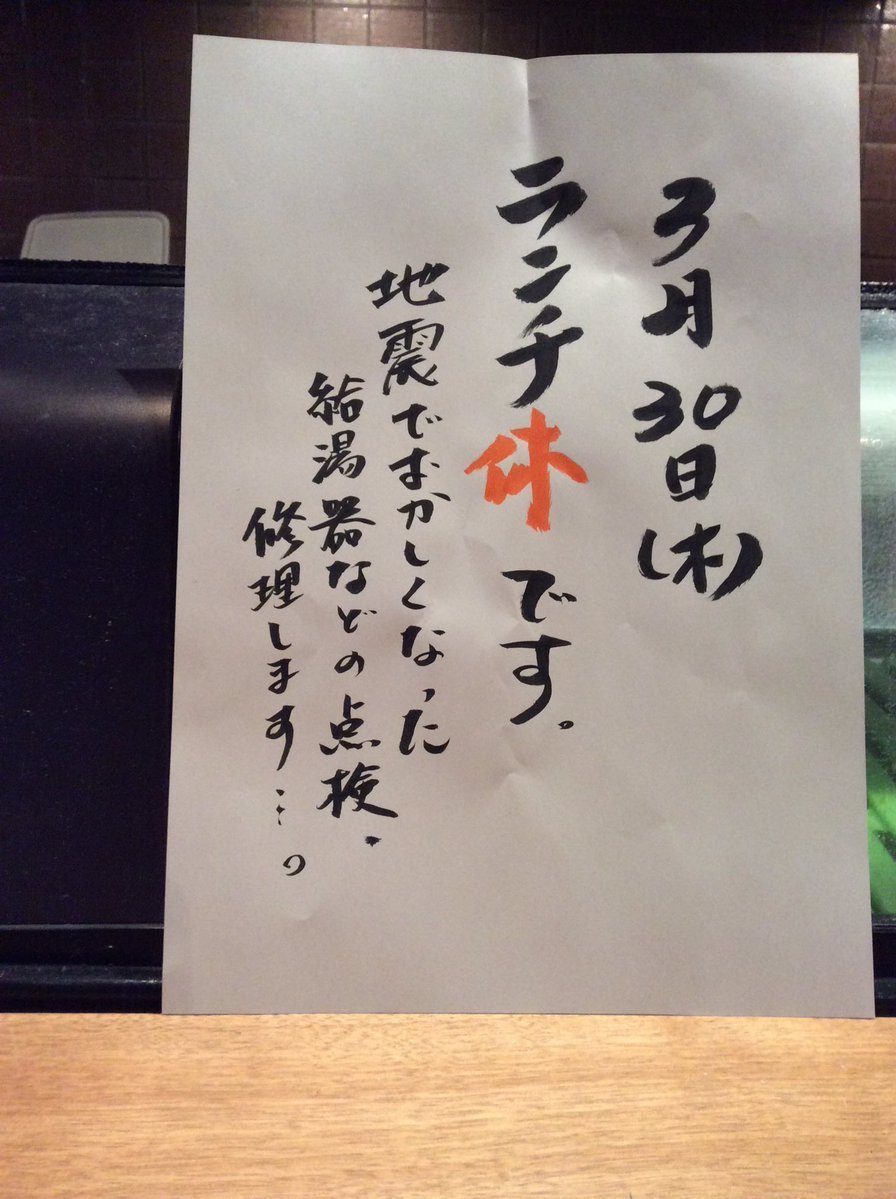 3月30日(木)
ランチ休です。
地震でおかしくなった
給湯器などの点検・
修理します…。